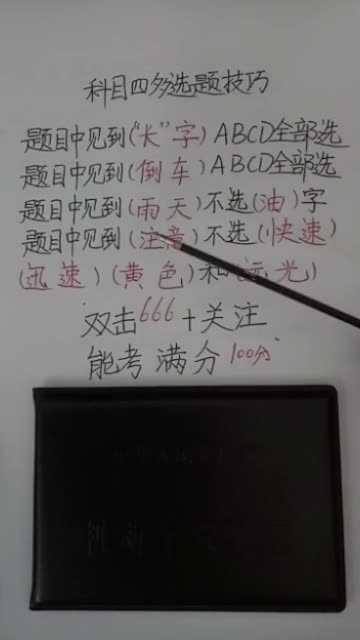 科目四多选题技巧
题目中见到(“长”字)ABCD全部选
题目中见到(倒车)ABCD全部选
题目中见到(雨天)不选(油)字
题目中见到(注意)不选(快速)
(迅速)(黄色)和(远光)
双击666+关注
能考满分100分